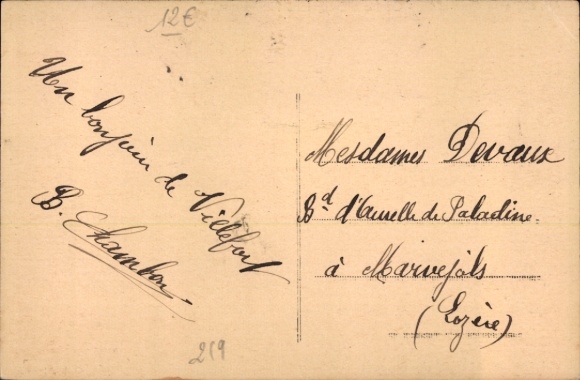 12€
Un bonjour de Villefort
B. Chambon
Mesdames Devaux
Bd d'Aurelle de Paladine
à Marvejols
(Lozère)
219